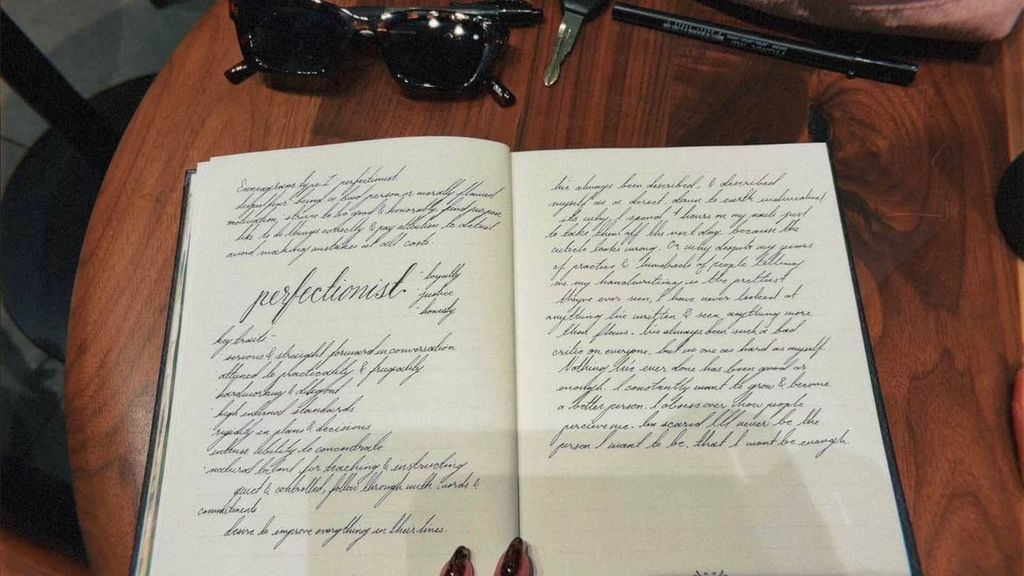 Enneagram type 1 perfectionist
deepest fear being a bad person or morally flawed
motivation, strive to be good & honorable, find purpose
like to do things correctly & pay attention to detail
avoid making mistakes at all costs.
perfectionist
· loyalty
· justice
· honesty
key traits -
· serious & straight forward in conversation
· attuned to practicality & frugality
hardworking & diligent
· high internal standards
· rigidity in plans & decisions
intense ability to concentrate
· natural talent for teaching & instructing
quiet & controlled, follow through with words &
commitments
desire to improve everything in their lives.
Ive always been described, & described
myself as, a direct, down to earth individual
its why, I spend, 7 hours on my nails just
to take them off the next day because the
cuticle looks wrong. Or why despite my years
of practice & hundreds of people telling
me my handwriting is the prettiest
theyve ever seen, I have never looked at
anything Ive written & seen anything more
than flaws. Ive always been such a bad
critic on everyone, but no one as hard as myself.
Nothing Ive ever done has been good or
enough. I constantly want to grow & become
a better person. I obsess over how people
perceive me. Im scared Ill never be the
person I want to be, that I wont be enough